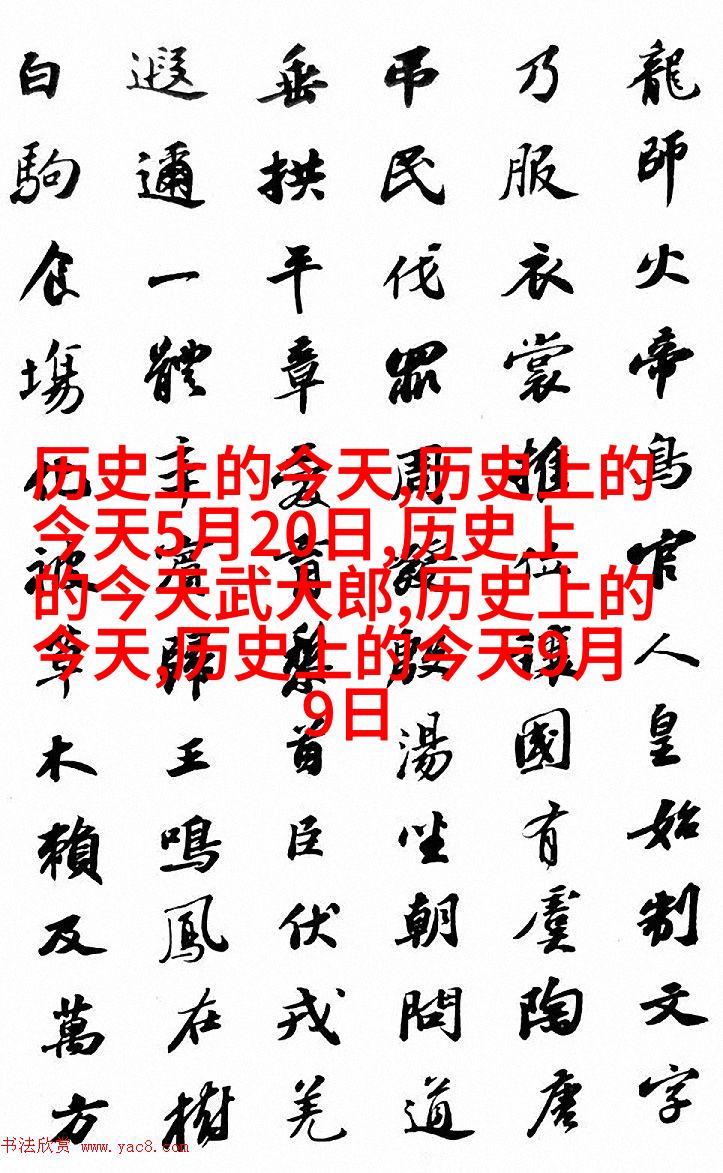 龍師火帝鳥官人皇始制文字
乃服衣裳推位讓國有虞陶唐
吊民伐罪周發殷湯坐朝問道
垂拱平章愛育黎首臣伏戎羌
遐邇一體率賓歸王鳴鳳在樹
白駒食場化被草木賴及萬方
历史上的今天,历史上的
今天5月20日,历史上
的今天武大郎,历史上的
今天,历史上的今天9月
9日
书法欣赏 www.yac8.com